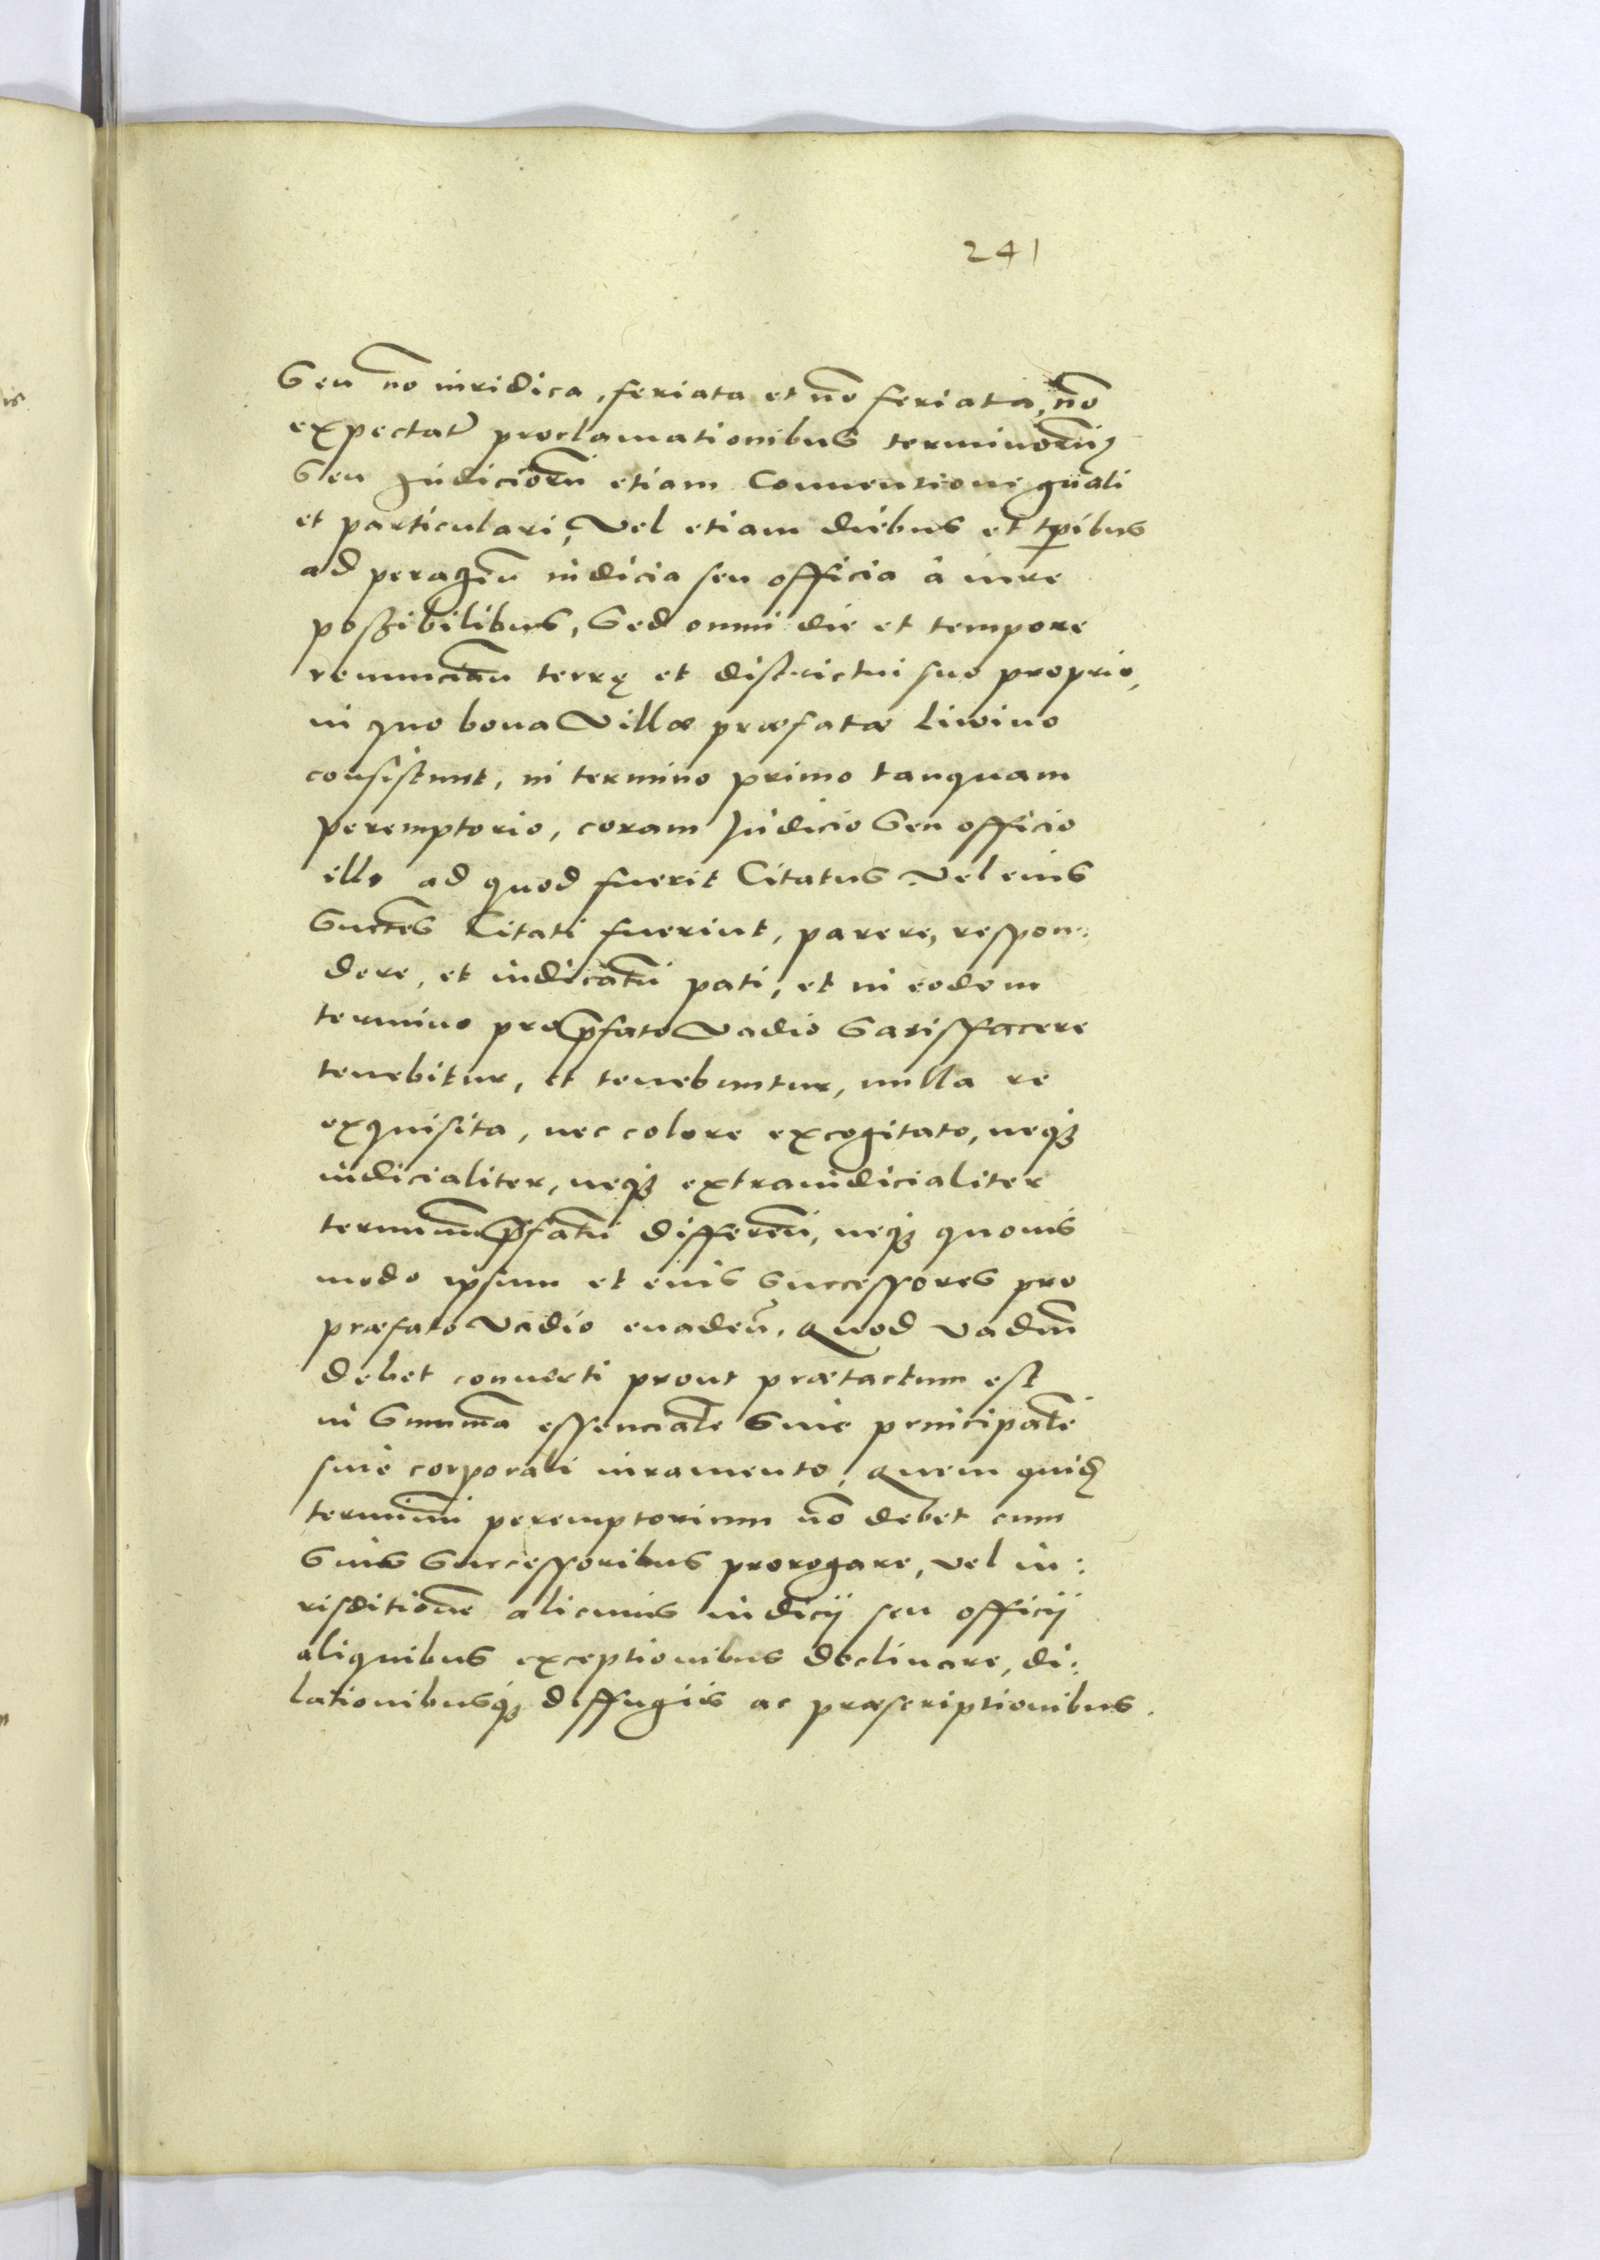 241
Seu nō iuridica, feriata et nō feriata, nō
expectat̄ proclamationibus terminorū,
Seu Judiciorū etiam Conventione gn̄ali
et particulari, Vel etiam diebus et tp̄ibus
ad peragen̄ iudicia seu officia á iure
possibilibus, Sed omni die et tempore
renuncian̄ terrę et districtui suo proprio,
in quo bona Villæ præfatæ Liwino
consistunt, in termino primo tanquam
peremptorio, coram Judicio Seu officio
illo ad quod fuerit Citatus Vel eius
Succēs Citati fuerint, parere, respon:
dere, et iudicatū pati, et in eodem
termino pro p̄fato Vadio Satisfacere
tenebitur, et tenebuntur, nulla re
exquisita, nec colore excogitato, neq₃
iudicialiter, neq₃ extraiudicialiter
terminū p̄fatū differen̄, neq₃ quovis
modo ipsum et eius Successores pro
præfato Vadio evaden̄. Quod Vadiū
debet converti prout prætactum est
in Summā essencialē Suie principalē
suie corporali iuramento, Quem quid̄
terminū peremptorium nō debet cum
Suis Successoribus prorogare, vel iu:
risditionē alicuius iudicij seu officij
aliquibus exceptionibus declinare, di:
lationibusq₃ diffugiis ac præscriptionibus.